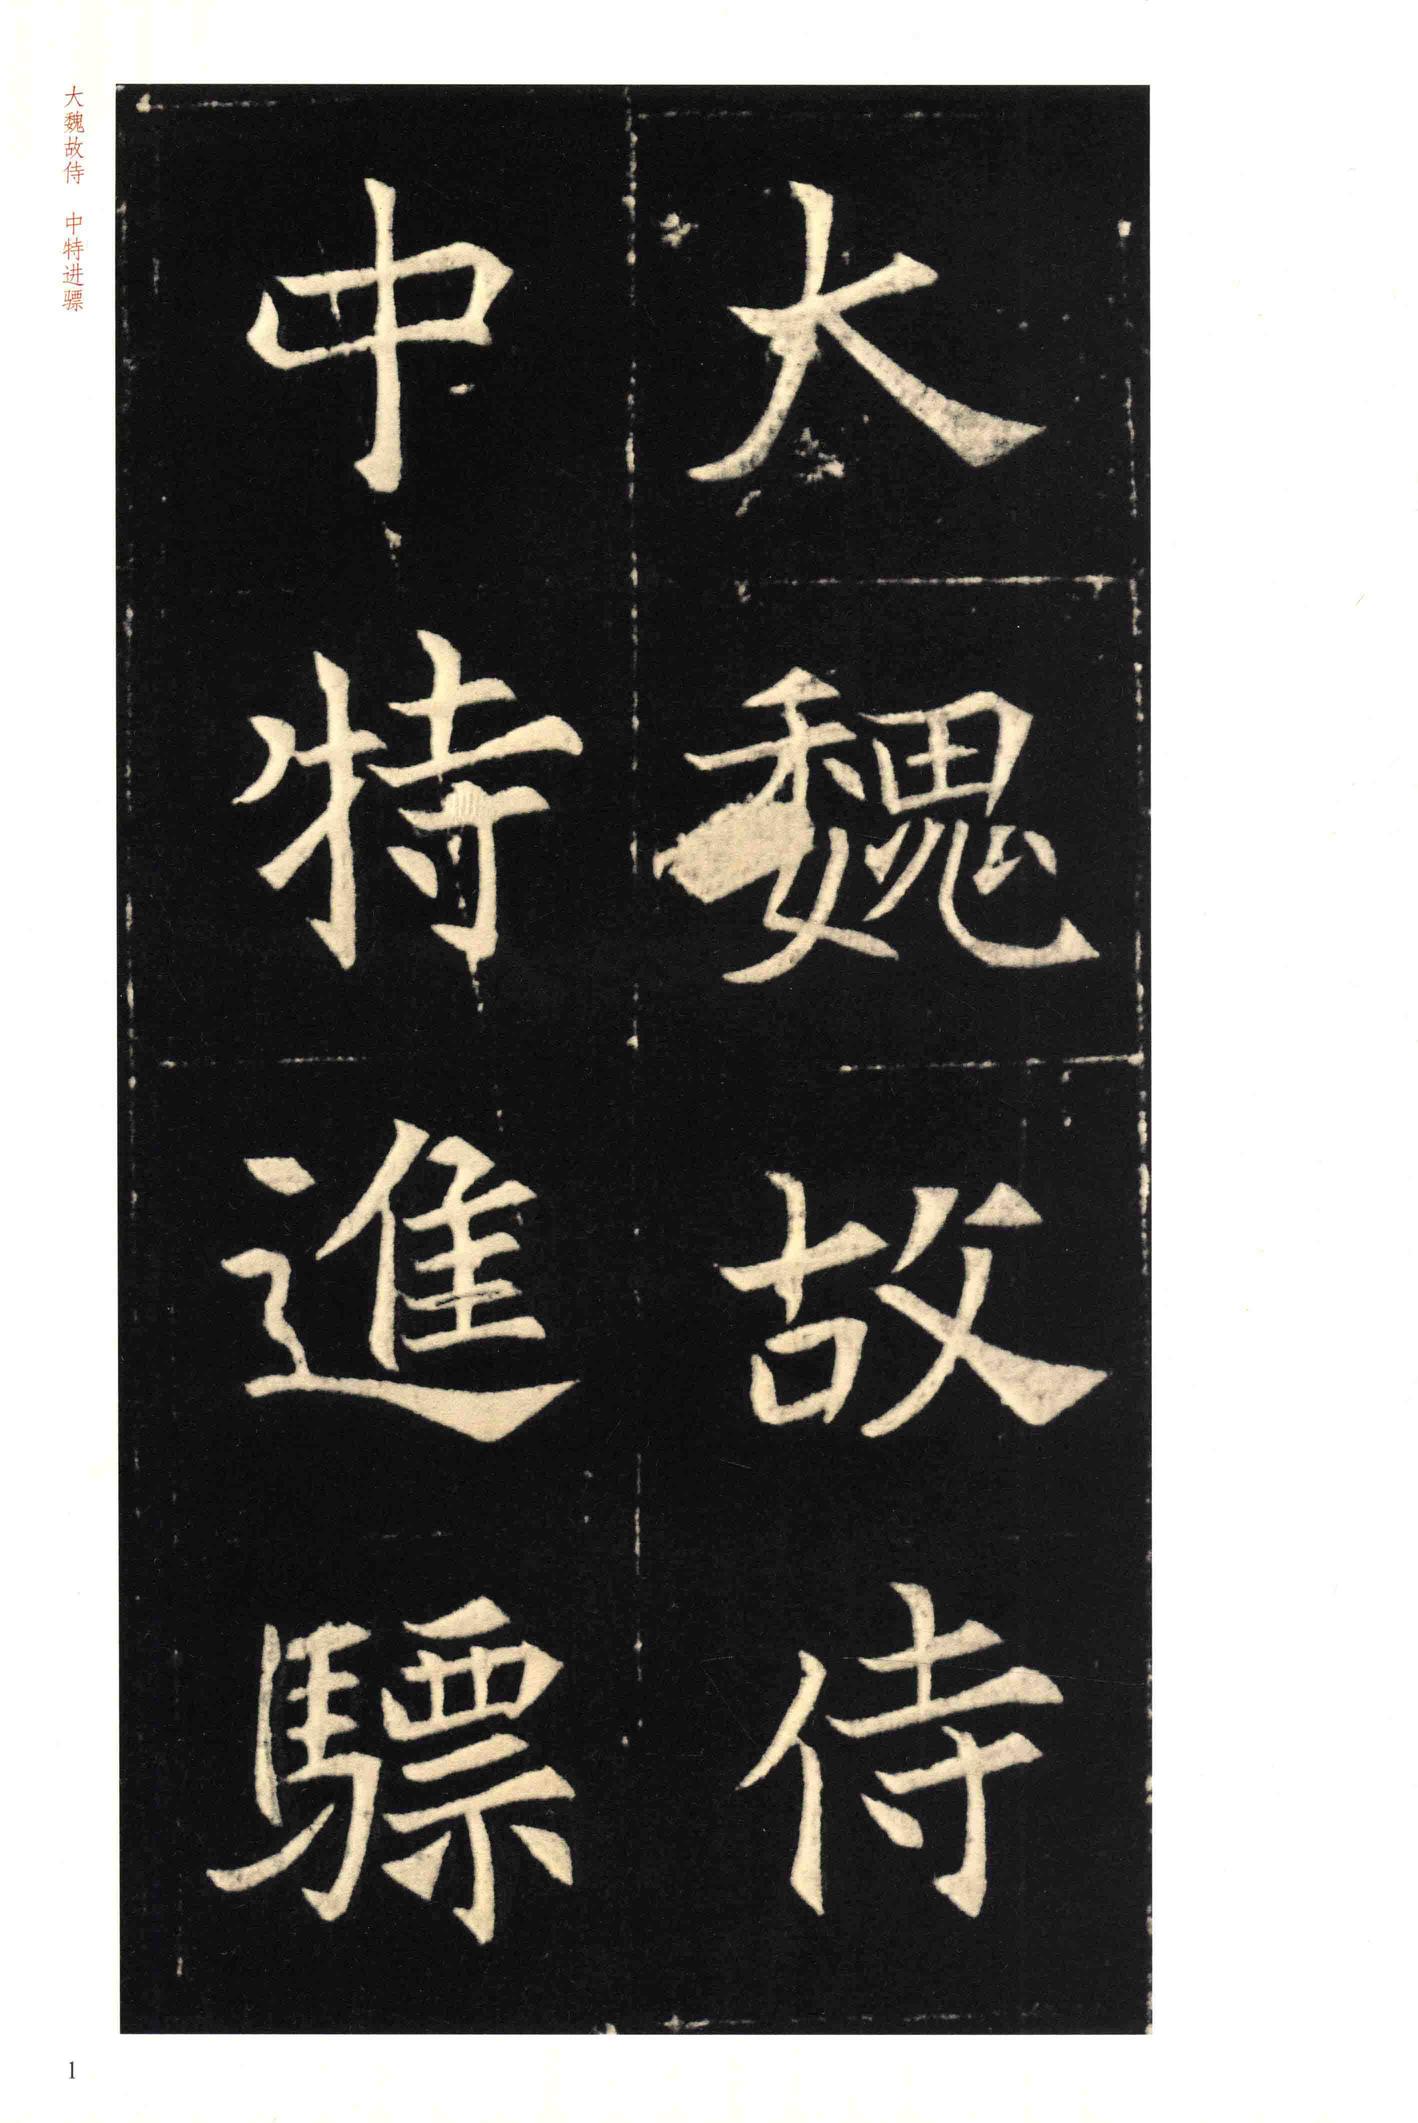 大魏故侍
中特進驃
大魏故侍　中特进骠
1